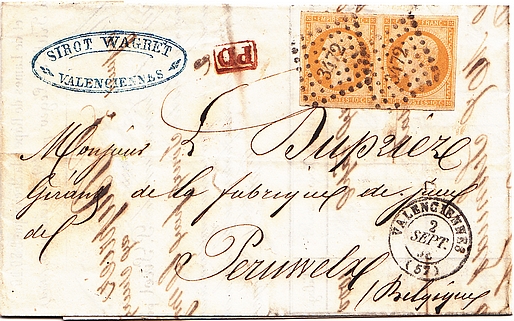 SIROT WAGRET
VALENCIENNES
PD
3472
3472
Monsieur L Dupriez
Gérant de la fabrique de
de
Peruwelz
(Belgique)
VALENCIENNES
2
SEPT.
(57)